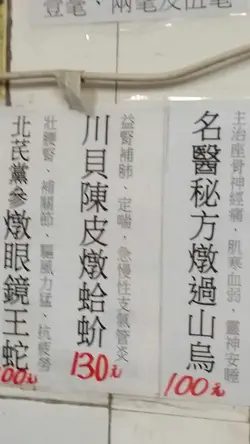 壹毫、兩毫及伍毫
主治座骨神經痛、肌寒血弱、靈神安睡
名醫秘方燉過山烏
100元
益腎補肺、定喘、急慢性支氣管炎
川貝陳皮燉蛤蚧
130元
壯腰腎、補關節、驅風力猛、抗疲勞
北芪黨參燉眼鏡王蛇
00元